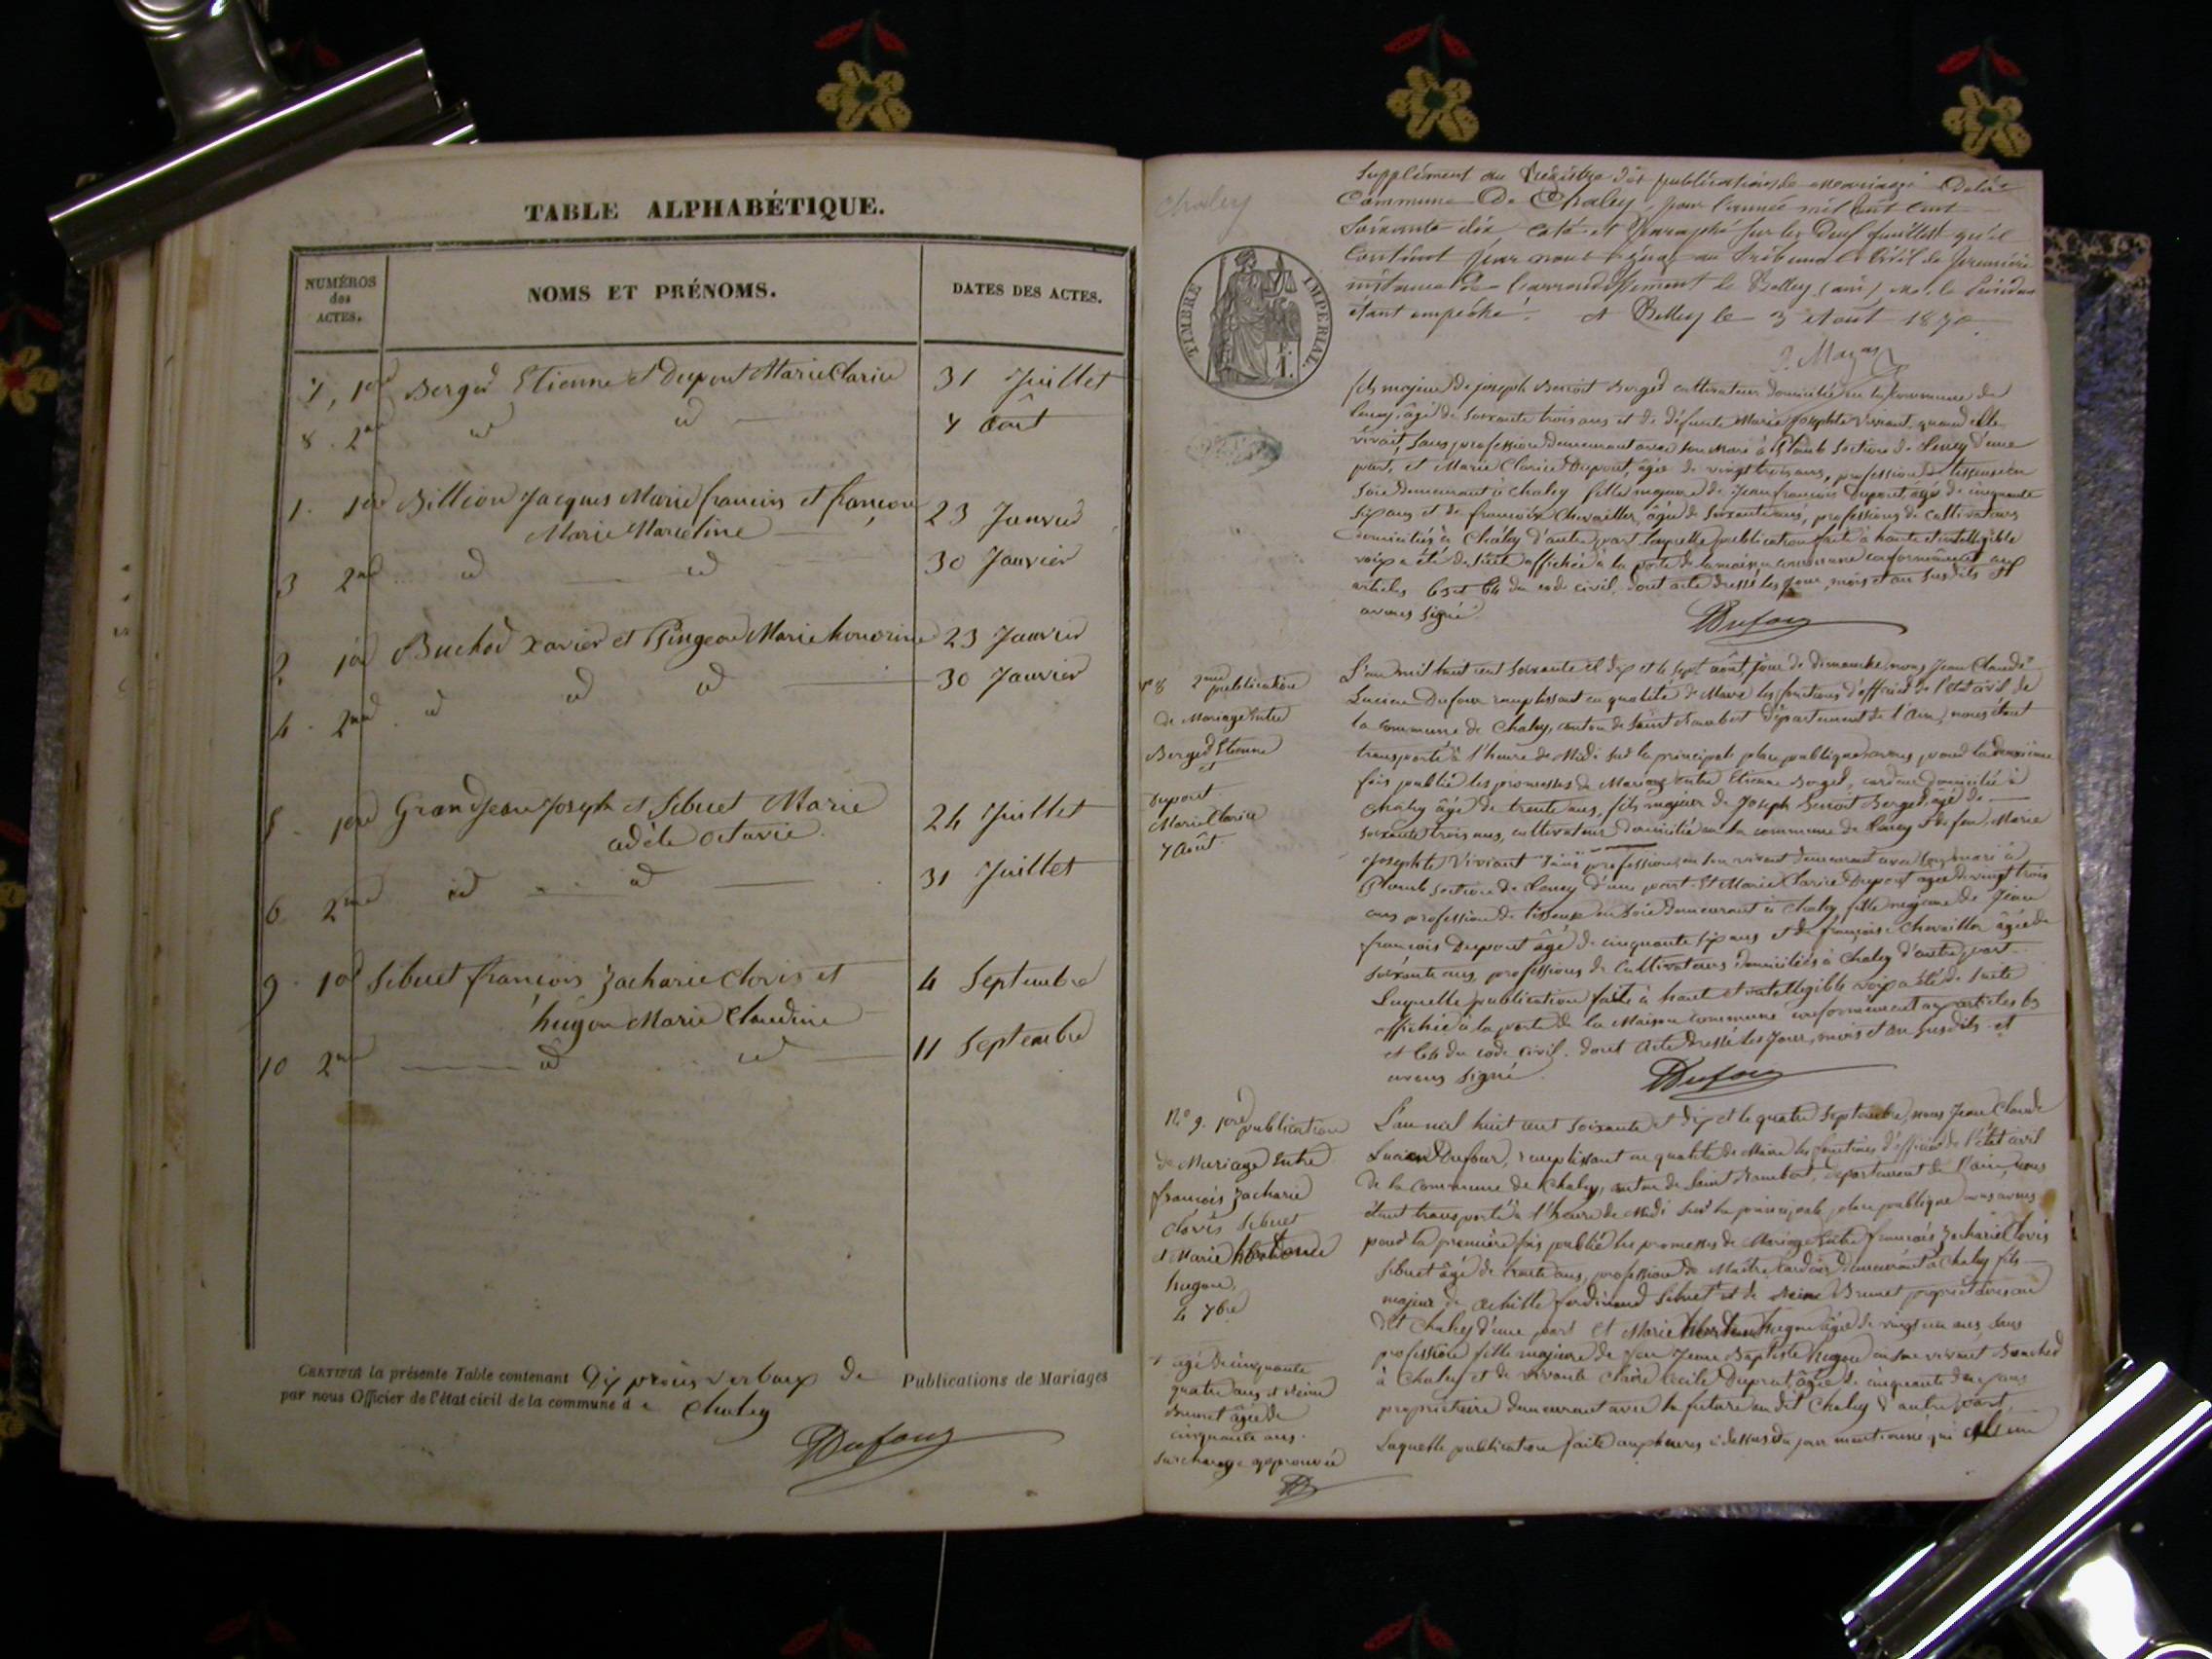 TABLE ALPHABÉTIQUE.
NUMÉROS des ACTES.
NOMS ET PRÉNOMS.
DATES DES ACTES.
7, 1ere Berger Etienne et Dupont Marie Clarice 31 Juillet
8. 2me id id 7 Août
1. 1ere Billion Jacques Marie françois et françon
Marie Marceline 23 Janvier
3 2me id id 30 Janvier
2 1ere Buchod Xavier et Pingeon Marie honorine 23 Janvier
4. 2me id id id 30 Janvier
5. 1ere Grandjean Joseph et Sibuet Marie
adèle octavie 24 Juillet
6 2me id id 31 Juillet
9. 1ere Sibuet françois Zacharie Clovis et 4 Septembre
hugon Marie Claudine
10 2me id id 11 Septembre
CERTIFIÉ la présente Table contenant Dix procès verbaux de Publications de Mariages
par nous Officier de l'état civil de la commune de Chaley
Dufour
Chaley
TIMBRE IMPÉRIAL
Supplément au Registre des publications de mariage de la
Commune De Chaley, pour l'année mil huit cent
soixante dix, coté et paraphé sur les deux feuillets qu'il
contient par nous juge au Tribunal Civil de première
instance de l'arrondissement de Belley (ain) M. le Président
étant empêché. A Belley le 3 Aout 1870.
fils majeur de joseph Benoit Berger cultivateur domicilié en la commune de
âgé de soixante trois ans et de défunte Marie Josephte Viviant, quand elle
vivait, sans profession demeurant avec son mari à Plomb section de d'une
part, et Marie Clarice Dupont, âgée de vingt trois ans, profession de tisseuse en
soie demeurant à Chaley fille majeure de Jean françois Dupont, âgé de cinquante
six ans et de françoise Chevaillier, âgée de soixante ans, professions de cultivateurs
domiciliés à Chaley d'autre part laquelle publication faite à haute et intelligible
voix a été de suite affichée à la porte de la maison commune conformément aux
articles 63 et 64 du code civil. dont acte dressé les jour, mois et an susdits et
avons signé
Dufour
n° 8 2me
publication
de Mariage Entre
Berger Etienne
et
Dupont
Marie Clarice
7 Août
L'an mil huit cent soixante et dix et le sept août, jour de dimanche, nous Jean Claude
Lucien Dufour remplissant en qualité de Maire les fonctions d'officier de l'état civil de
la commune de Chaley, canton de Saint Rambert département de l'Ain, nous étant
transporté à l'heure de Midi sur la principale place publique avons pour la deuxième
fois publié les promesses de Mariage entre Etienne Berger, cardeur domicilié à
Chaley âgé de trente ans, fils majeur de Joseph Benoit Berger, âgé de
soixante trois ans, cultivateur domicilié en la commune de et de feu Marie
Josephte Viviant sans profession, en son vivant demeurant avec son mari à
Plomb section de d'une part. Et Marie Clarice Dupont agée de vingt trois
ans profession de tisseuse en soie demeurant à Chaley fille majeure de Jean
françois Dupont âgé de cinquante six ans et de françoise Chevaillier âgée de
soixante ans, professions de Cultivateurs domiciliés à Chaley d'autre part.
Laquelle publication faite à haute et intelligible voix a été de suite
affichée à la porte de la Maison commune conformément aux articles 63
et 64 du code civil. dont acte dressé les jour, mois et an susdits et
avons signé
Dufour
N° 9. 1ere
publication
de Mariage Entre
françois Zacharie
Clovis Sibuet
et Marie
hugon
4 7bre
L'an mil huit cent soixante et dix et le quatre Septembre, nous Jean Claude
Lucien Dufour, remplissant en qualité de Maire les fonctions d'officier de l'état civil
de la commune de Chaley, canton de Saint Rambert, département de l'ain, nous
étant transporté à l'heure de Midi sur la principale place publique nous avons
pour la première fois publié les promesses de Mariage Entre françois Zacharie Clovis
Sibuet âgé de trente ans, profession de Maître Cardeur demeurant à Chaley fils
majeur de Achille ferdinand Sibuet et de Reine Brunet propriétaires au
dit Chaley d'une part Et Marie hugon âgée de vingt un ans, sans
profession fille majeure de feu Jean Baptiste hugon en son vivant
à Chaley et de vivante Claire Cécile Dupont, âgée de cinquante ans
propriétaire demeurant avec la future au dit Chaley d'autre part.
Laquelle publication faite aux heures ci dessus du jour mentionné qui est un
+ agé de cinquante
quatre ans et Reine
Brunet âgée de
cinquante ans.
surcharge approuvée